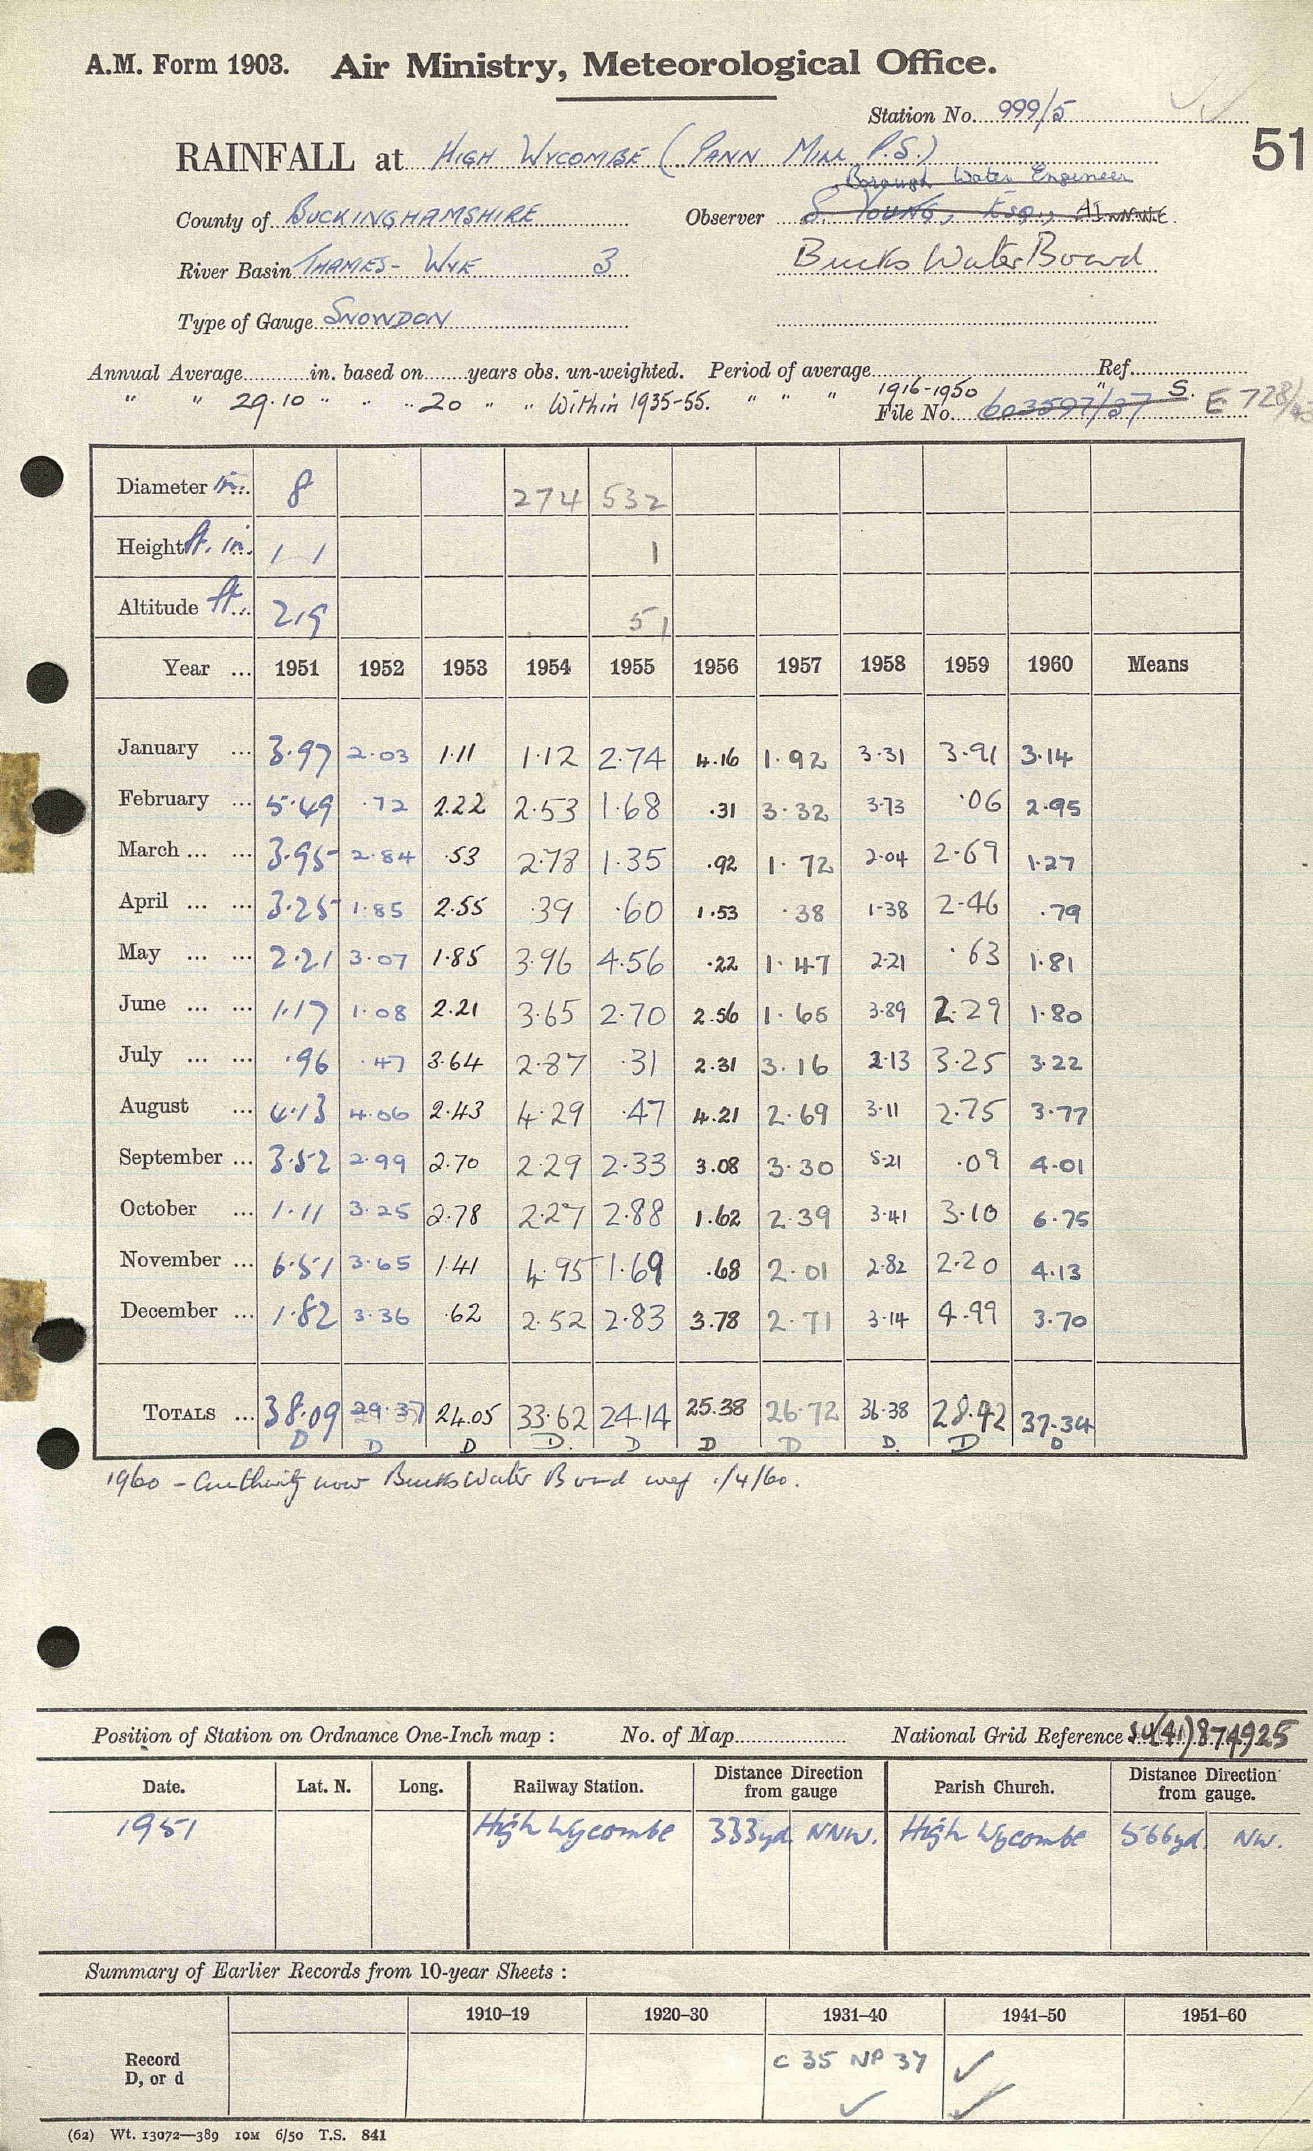 A.M. Form 1903. Air Ministry, Meteorological Office.
Station No. 999/5
51
RAINFALL at HIGH WYCOMBE (PANN MILL P.S.)
Borough Water Engineer
County of BUCKINGHAMSHIRE Observer S. YOUNG, ESQ.,
River Basin THAMES - WYE 3 Bucks Water Board
Type of Gauge SNOWDON
Annual Average in. based on years obs. un-weighted. Period of average Ref.
" " 29.10 " " " 20 " " Within 1935-55. " " " 1916-1950 "
File No. 603597/37 S. E 728/
Diameter in. 8 274 532
Height ft. in. 1 1 1
Altitude ft. 219 51
Year ... 1951 1952 1953 1954 1955 1956 1957 1958 1959 1960 Means
January ... 3.97 2.03 1.11 1.12 2.74 4.16 1.92 3.31 3.91 3.14
February ... 5.49 .72 2.22 2.53 1.68 .31 3.32 3.73 .06 2.95
March ... ... 3.95 2.84 .53 2.78 1.35 .92 1.72 2.04 2.69 1.27
April ... ... 3.25 1.85 2.55 .39 .60 1.53 .38 1.38 2.46 .79
May ... ... 2.21 3.07 1.85 3.96 4.56 .22 1.47 2.21 .63 1.81
June ... ... 1.17 1.08 2.21 3.65 2.70 2.56 1.65 3.89 2.29 1.80
July ... ... .96 .47 3.64 2.87 .31 2.31 3.16 2.13 3.25 3.22
August ... 4.13 4.06 2.43 4.29 .47 4.21 2.69 3.11 2.75 3.77
September ... 3.52 2.99 2.70 2.29 2.33 3.08 3.30 5.21 .09 4.01
October ... 1.11 3.25 2.78 2.27 2.88 1.62 2.39 3.41 3.10 6.75
November ... 6.51 3.65 1.41 4.95 1.69 .68 2.01 2.82 2.20 4.13
December ... 1.82 3.36 .62 2.52 2.83 3.78 2.71 3.14 4.99 3.70
TOTALS ... 38.09 29.37 24.05 33.62 24.14 25.38 26.72 36.38 28.42 37.34
D D D D. D D D D. D D
1960 - Authority now Bucks Water Board wef 1/4/60.
Position of Station on Ordnance One-Inch map : No. of Map National Grid Reference SU(41)874925
Date. Lat. N. Long. Railway Station. Distance Direction from gauge Parish Church. Distance Direction from gauge.
1951 High Wycombe 333yd. NNW. High Wycombe 566yd. NW.
Summary of Earlier Records from 10-year Sheets :
1910–19 1920–30 1931–40 1941–50 1951–60
Record
D, or d
C 35 NP 37
(62) Wt. 13072—389 10M 6/50 T.S. 841